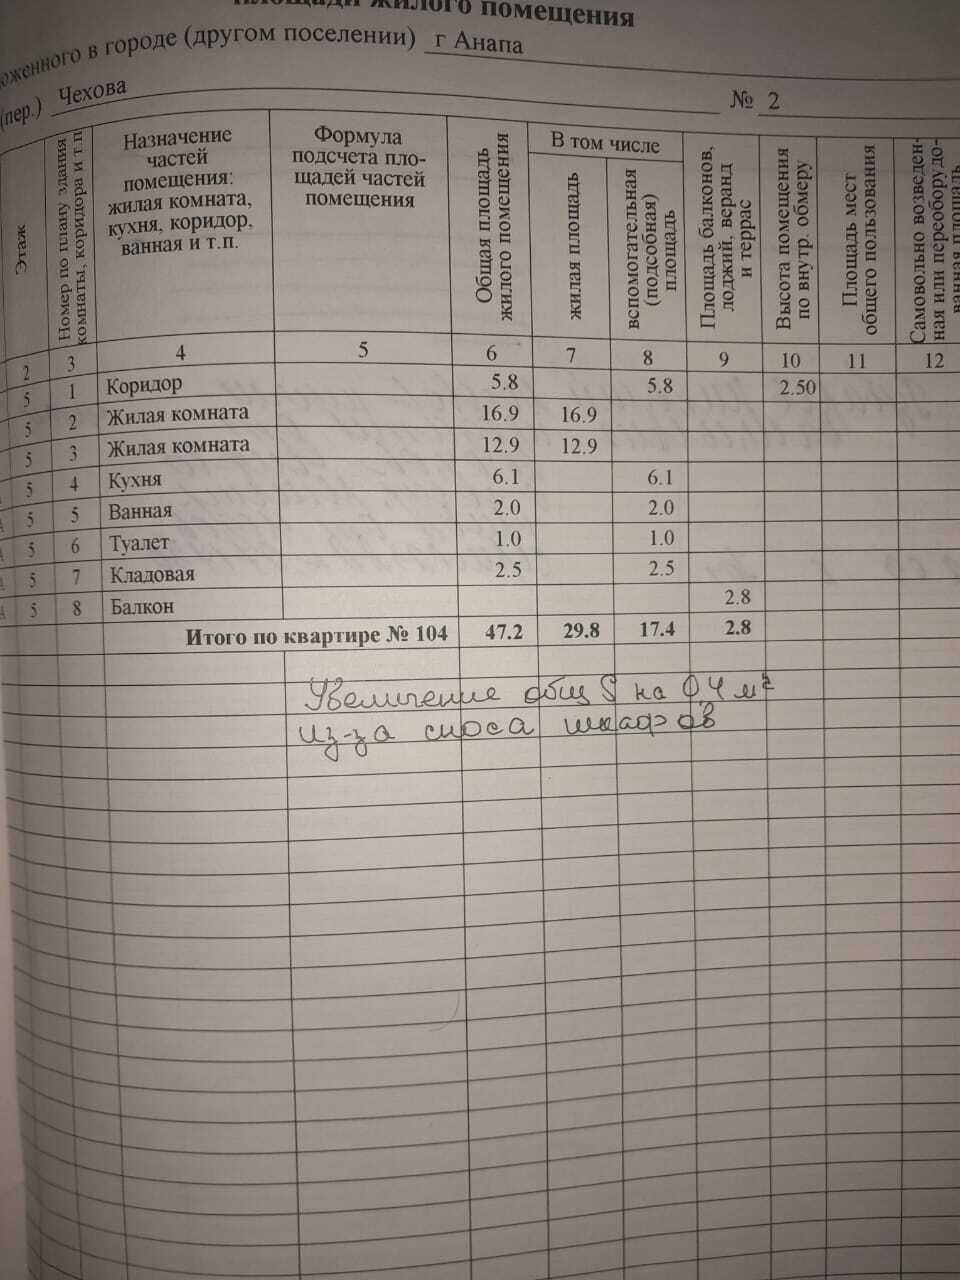 площади жилого помещения
оженного в городе (другом поселении) г Анапа
(пер.) Чехова № 2
Этаж
Номер по плану здания комнаты, коридора и т.п
Назначение
частей
помещения:
жилая комната,
кухня, коридор,
ванная и т.п.
Формула
подсчета пло-
щадей частей
помещения
Общая площадь
жилого помещения
В том числе
жилая площадь
вспомогательная
(подсобная)
площадь
Площадь балконов,
лоджий, веранд
и террас
Высота помещения
по внутр. обмеру
Площадь мест
общего пользования
Самовольно возведен-
ная или переоборудо-
ванная площадь
2 3 4 5 6 7 8 9 10 11 12
5 1 Коридор 5.8 5.8 2.50
5 2 Жилая комната 16.9 16.9
5 3 Жилая комната 12.9 12.9
5 4 Кухня 6.1 6.1
5 5 Ванная 2.0 2.0
5 6 Туалет 1.0 1.0
5 7 Кладовая 2.5 2.5
5 8 Балкон 2.8
Итого по квартире № 104 47.2 29.8 17.4 2.8
Увеличение общ S на 0,4 м²
из-за сноса шкафов